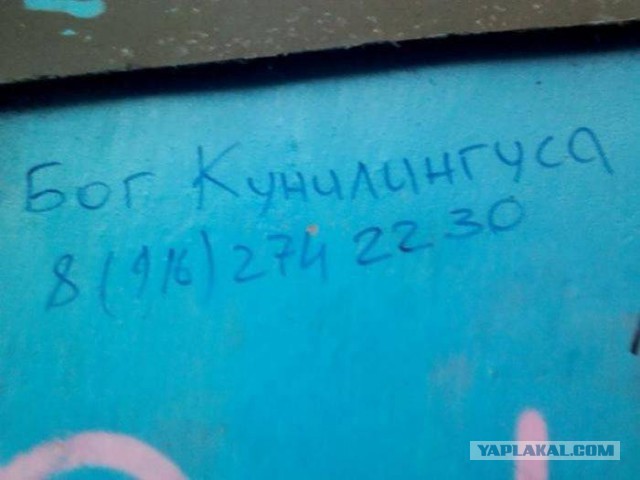 Бог Кунилингуса
8(916)274 22 30
YAPLAKAL.COM